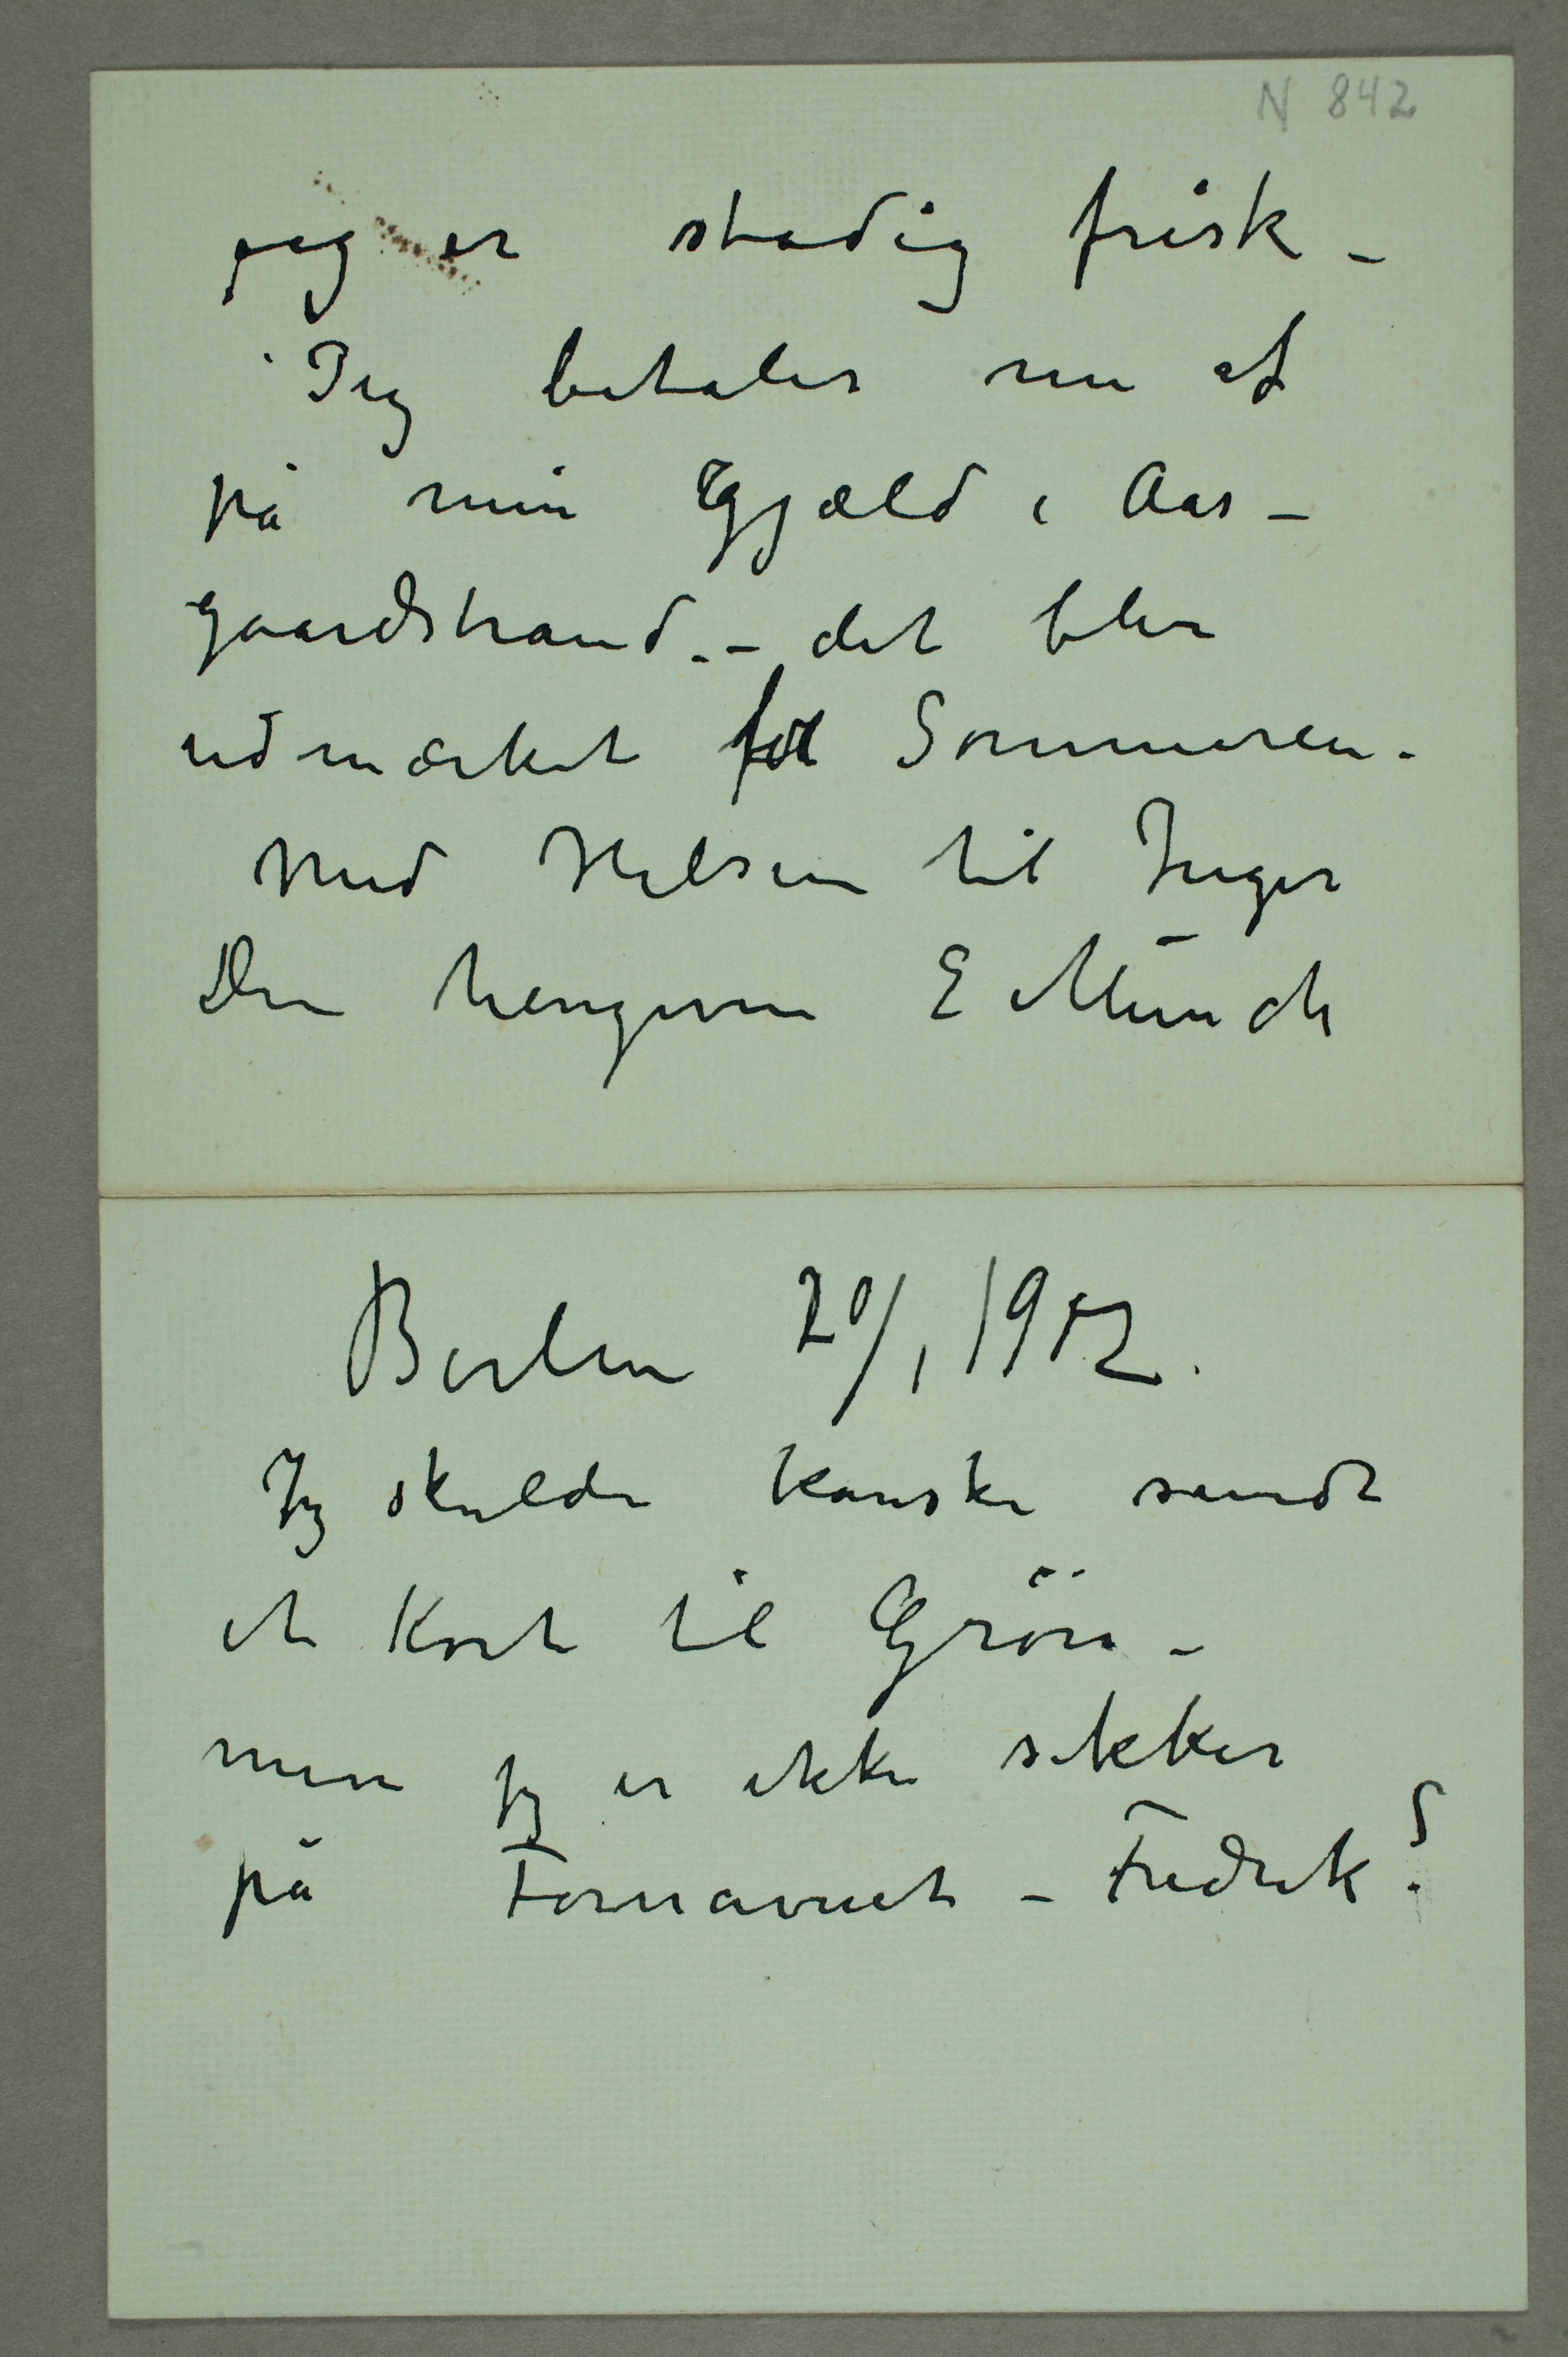 N 842
jeg er stadig frisk –
Jeg betaler nu af
på min Gjæld i Aas–
gaardstrand. – det blir
udmærket for Sommeren.
Med Hilsen til Inger
Din hengivne E Munch
Berlin 20/1 1902.
Jeg skulde kanske sendt
et Kort til Grön –
men jeg er ikke sikker
på Fornavnet – Fredrik?